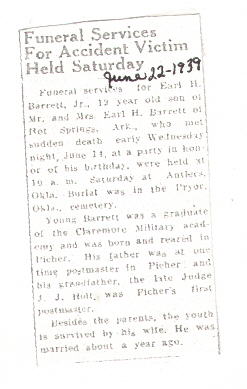 Funeral Services
For Accident Victim
Held Saturday
June 22-1939
Funeral services for Earl H.
Barrett, Jr., 19 year old son of
Mr. and Mrs. Earl H. Barrett of
Hot Springs, Ark., who met
sudden death early Wednesday
night, June 14, at a party in hon-
or of his birthday, were held at
10 a.m. Saturday at Antlers,
Okla. Burial was in the Pryor,
Okla., cemetery.
Young Barrett was a graduate
of the Claremore Military acad-
emy and was born and reared in
Picher. His father was at one
time postmaster in Picher and
his grandfather, the late Judge
J. J. Holt, was Picher's first
postmaster.
Besides the parents, the youth
is survived by his wife. He was
married about a year ago.